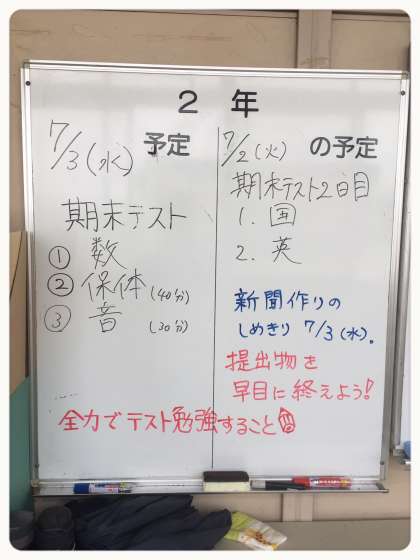 2年
7/3(水) 予定
期末テスト
① 数
② 保体 (40分)
③ 音 (30分)
全力でテスト勉強すること
7/2(火) の予定
期末テスト2日目
1. 国
2. 英
新聞作りの
しめきり 7/3(水)。
提出物を
早目に終えよう!